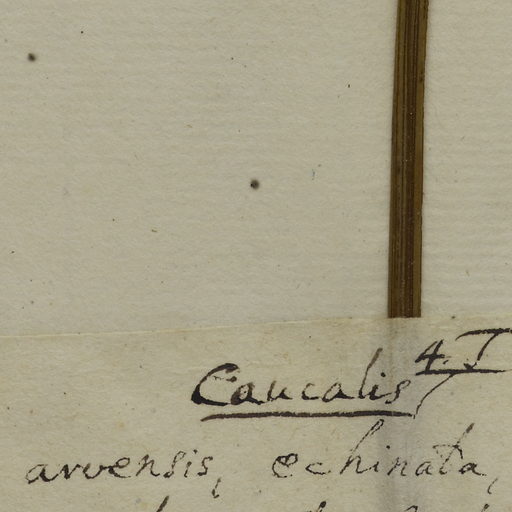 Caucalis 4. J
arvensis, echinata,